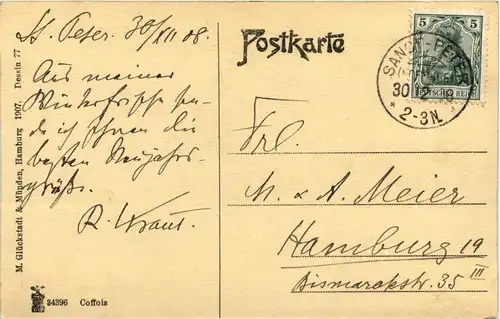 St. Peter. 30/XII 08.
Aus meiner
Winterfrische sen-
de ich Ihnen die
besten Neujahrs-
grüße.
R. Kraut.
Postkarte
5 5
SANCT-PETER
30.12.
* 2-3N. *
Frl.
M. & A. Meier
Hamburg 19
Bismarckstr. 35 III
M. Glückstadt & Münden, Hamburg 1907. Dessin 77
34396 Coffois